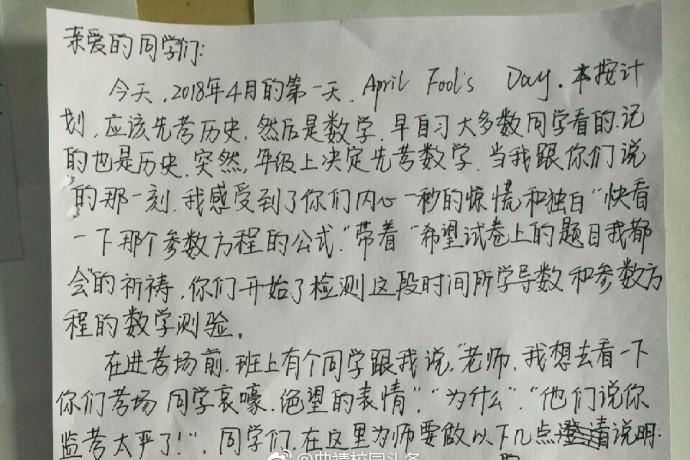 亲爱的同学们:
今天,2018年4月的第一天,April Fool's Day.本按计
划,应该先考历史,然后是数学,早自习大多数同学看的.记
的也是历史.突然,年级上决定先考数学,当我跟你们说
的那一刻,我感受到了你们内心一秒的惊慌和独白"快看
一下那个参数方程的公式."带着"希望试卷上的题目我都
会"的祈祷,你们开始了检测这段时间所学导数和参数方
程的数学测验。
在进考场前,班上有个同学跟我说,"老师,我想去看一下
你们考场同学哀嚎.绝望的表情","为什么","他们说你
监考太严了!",同学们,在这里为师要做以下几点澄清说明:
@曲靖校园头条